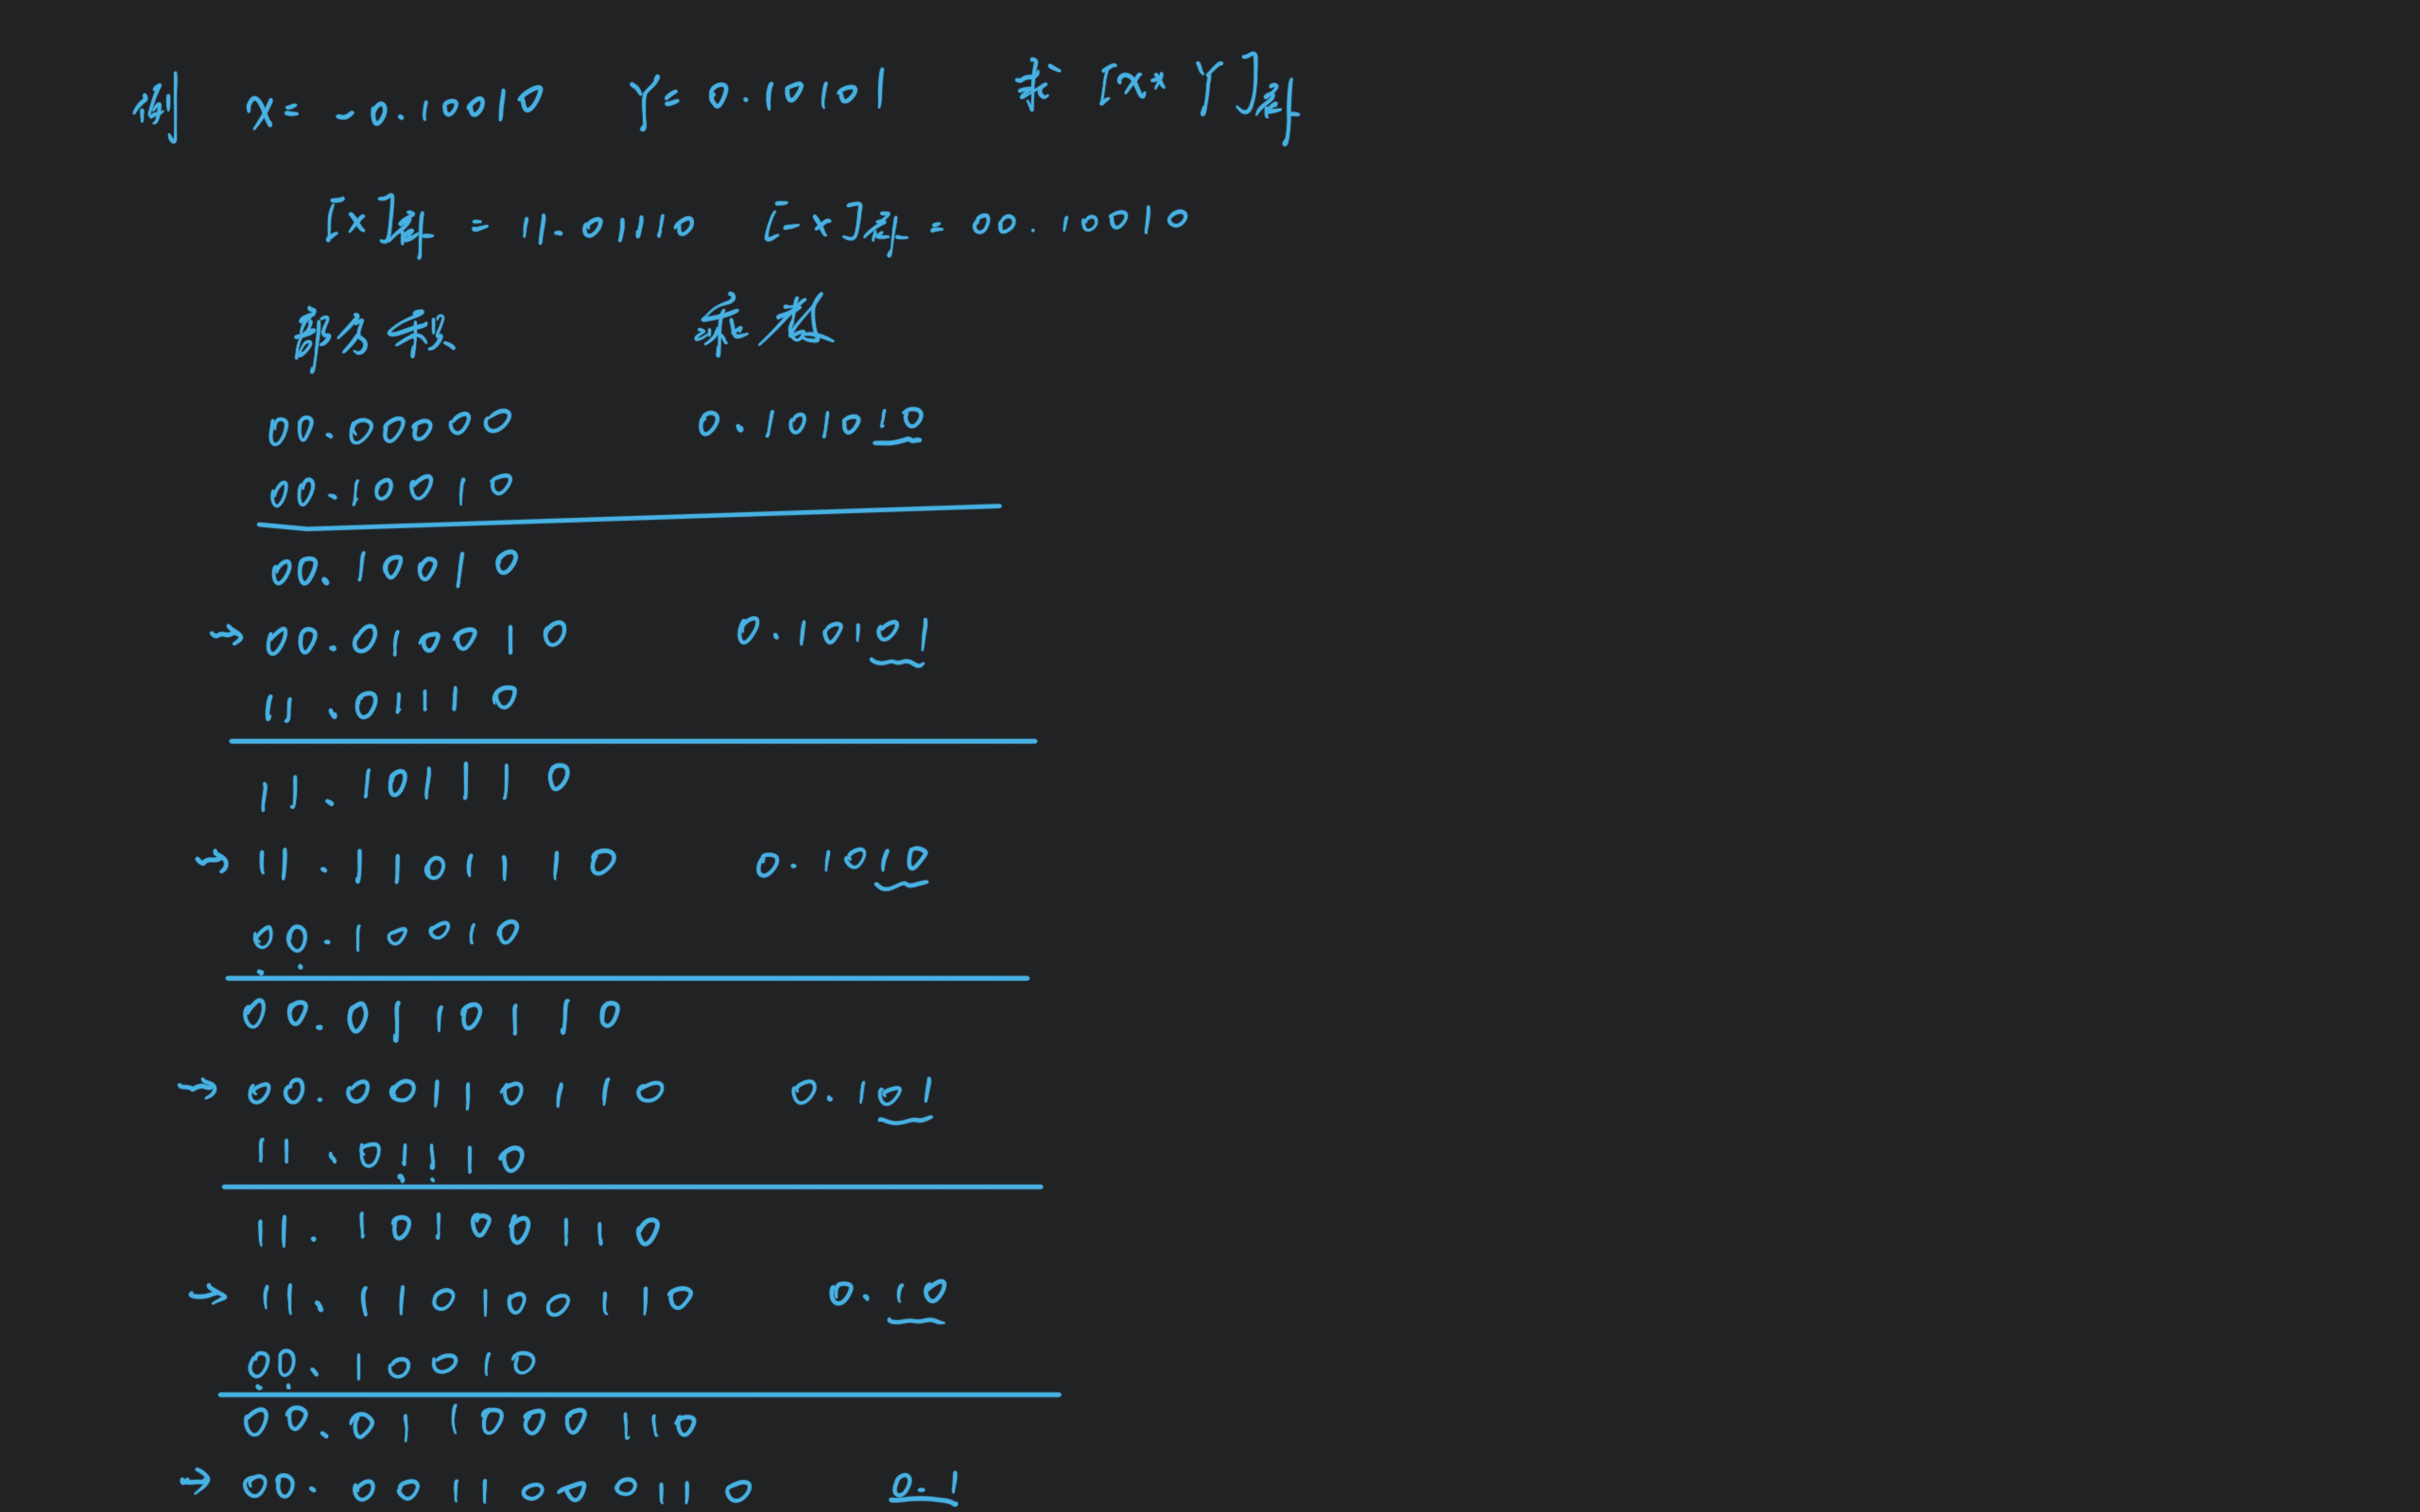 例 X= -0.10010 Y= 0.10101 求 [X*Y]补
[X]补 = 11.01110 [-X]补 = 00.10010
部分积 乘数
00.00000 0.101010
00.10010
00.10010
→ 00.010010 0.10101
11.01110
11.101110
→ 11.1101110 0.1010
00.10010
00.0110110
→ 00.00110110 0.101
11.01110
11.10100110
→ 11.110100110 0.10
00.10010
00.011000110
→ 00.0011000110 0.1